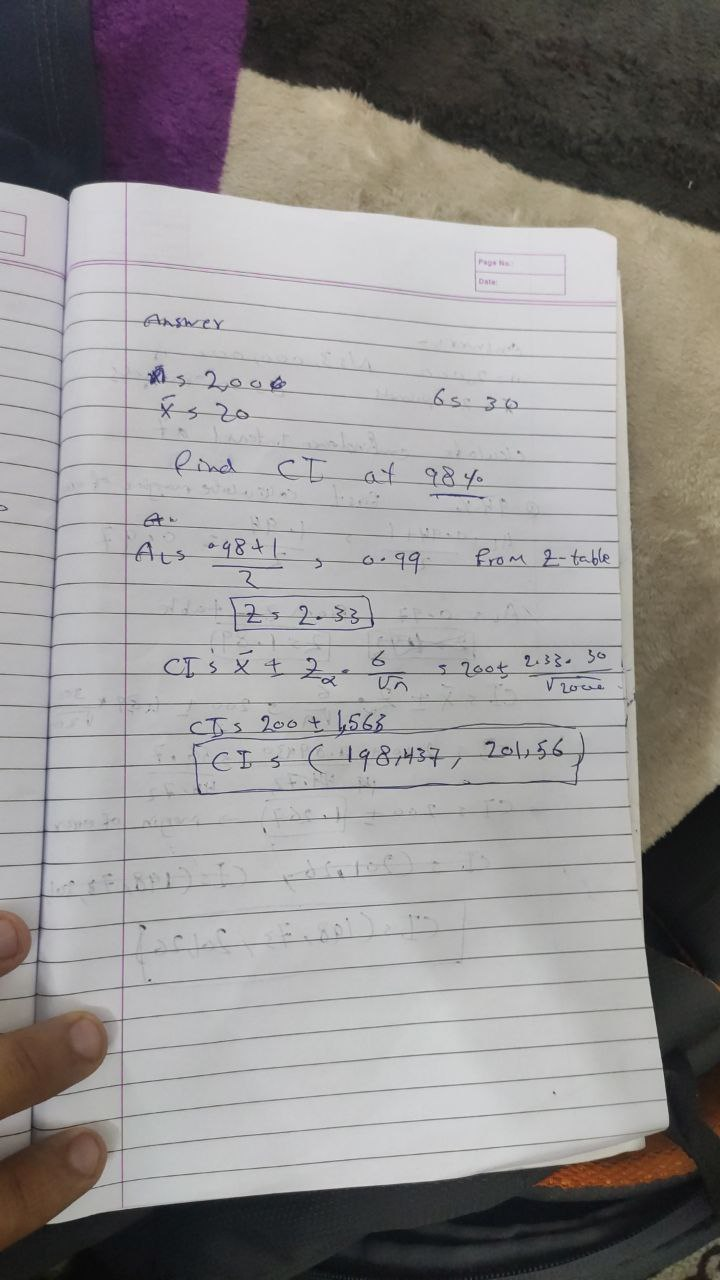 Page No.:
Date:
Answer
n = 2,000
σ = 30
x̄ = 20
find CI at 98%
A.
AL = .98+1 / 2 , 0.99 from Z-table
Z = 2.33
CI = x̄ ± Zα . σ/√n = 200 ± 2.33 . 30 / √2000
CI = 200 ± 1,563
CI = ( 198,437 , 201,56 )